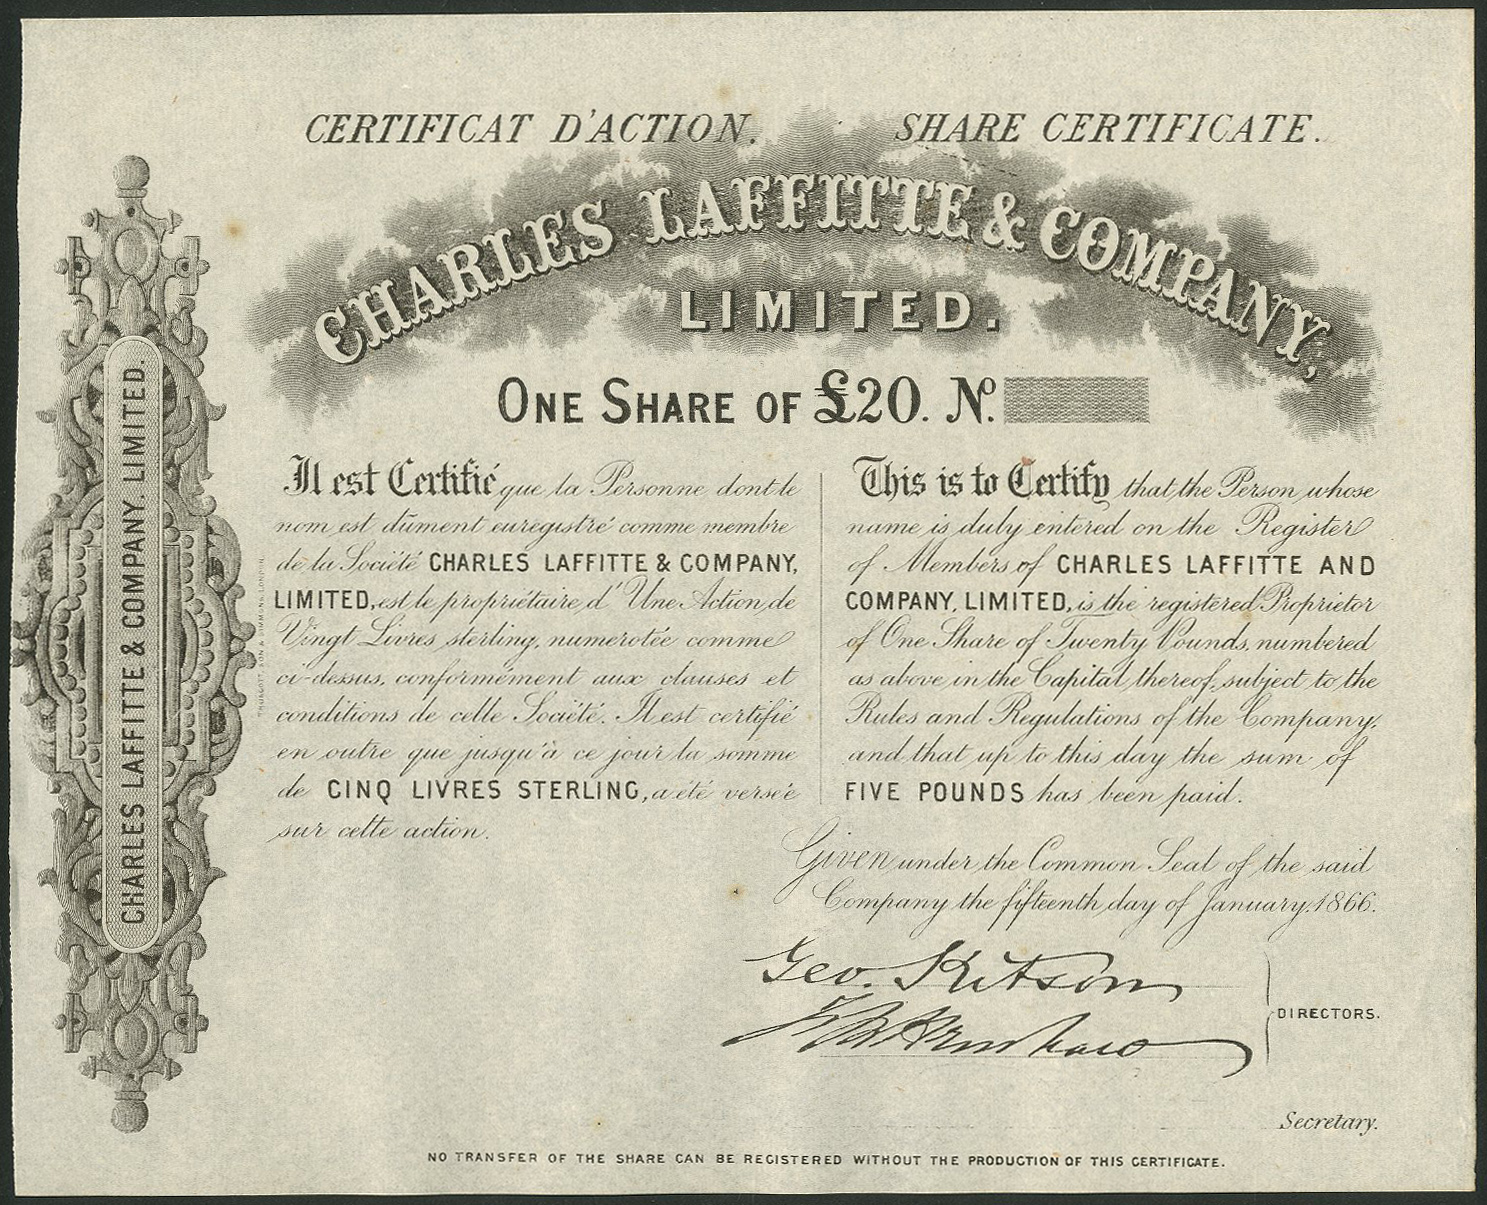 CERTIFICAT D'ACTION.
SHARE CERTIFICATE.
CHARLES LAFFITTE & COMPANY,
LIMITED.
ONE SHARE OF £20. No.
Il est Certifié que la Personne dont le
nom est dûment euregistré comme membre
de la Société CHARLES LAFFITTE & COMPANY,
LIMITED, est le propriétaire d'Une Action de
Vingt Livres sterling, numerotée comme
ci-dessus, conformément aux clauses et
conditions de cette Société. Il est certifié
en outre que jusqu'à ce jour la somme
de CINQ LIVRES STERLING, a été versée
sur cette action.
This is to Certify that the Person whose
name is duly entered on the Register
of Members of CHARLES LAFFITTE AND
COMPANY, LIMITED, is the registered Proprietor
of One Share of Twenty Pounds, numbered
as above in the Capital thereof, subject to the
Rules and Regulations of the Company,
and that up to this day the sum of
FIVE POUNDS has been paid.
Given under the Common Seal of the said
Company the fifteenth day of January, 1866.
Geo. Kitson
DIRECTORS.
Secretary.
NO TRANSFER OF THE SHARE CAN BE REGISTERED WITHOUT THE PRODUCTION OF THIS CERTIFICATE.
CHARLES LAFFITTE & COMPANY, LIMITED.
LONDON